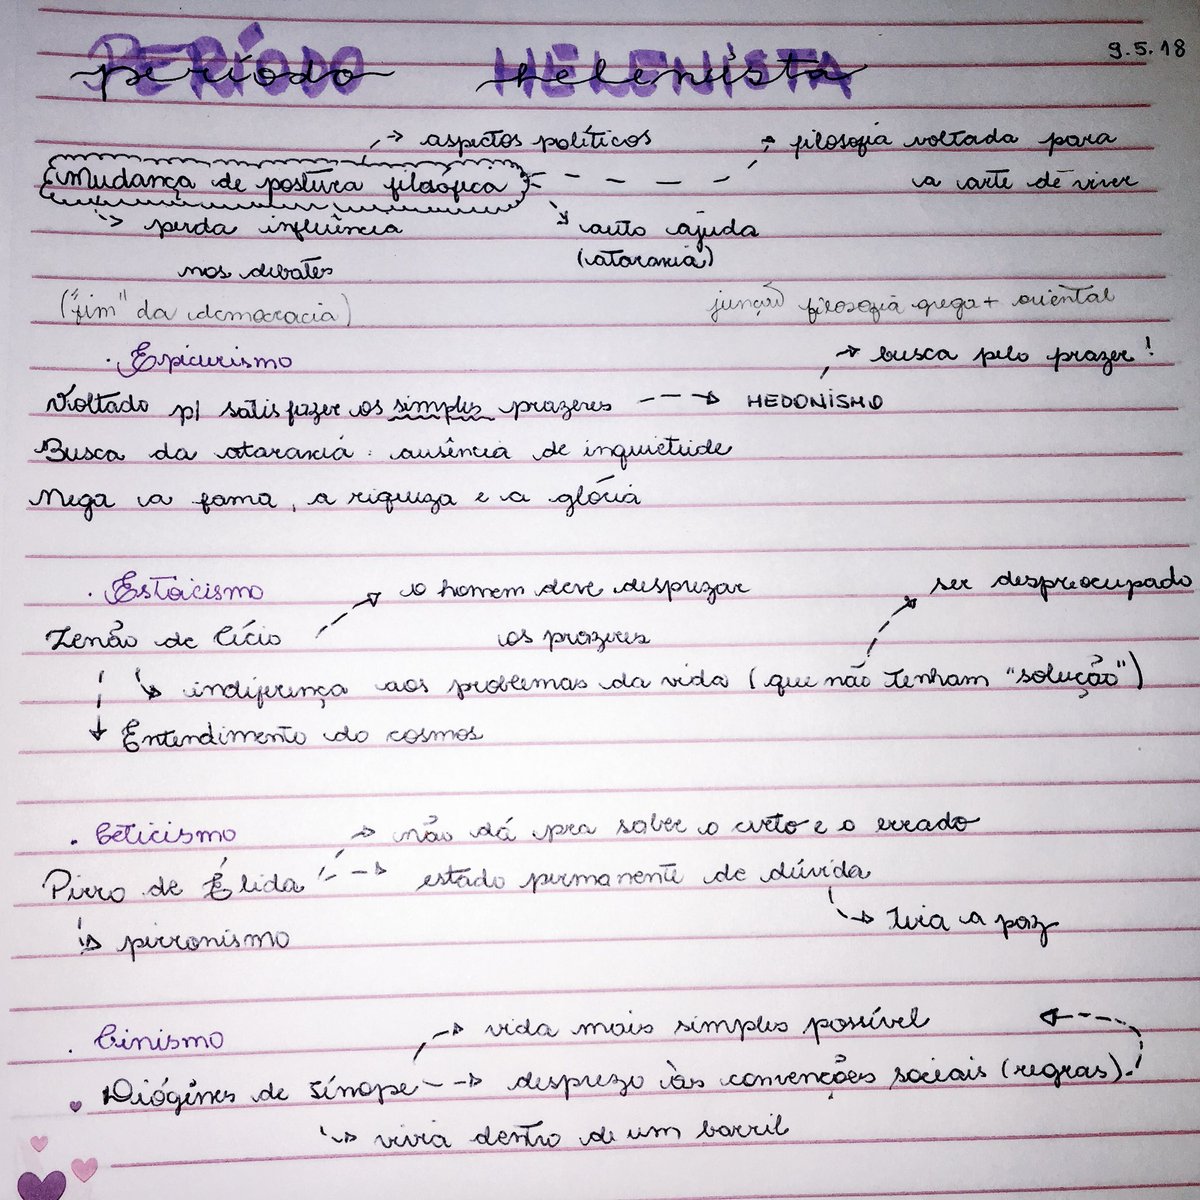 9.5.18
PERÍODO HELENISTA
período helenista
aspectos políticos
filosofia voltada para
a arte de viver
Mudança de postura filosófica
perda influência
nos debates
("fim" da democracia)
auto ajuda
(ataraxia)
junção filosofia grega + oriental
· Epicurismo
busca pelo prazer!
Voltado p/ satisfazer os simples prazeres
HEDONISMO
Busca da ataraxia: ausência de inquietude
Nega a fama, a riqueza e a glória
· Estoicismo
o homem deve desprezar
os prazeres
ser despreocupado
Zenão de Cício
indiferença aos problemas da vida (que não tenham "solução")
Entendimento do cosmos
· Ceticismo
não dá pra saber o certo e o errado
Pirro de Élida
estado permanente de dúvida
teria a paz
pirronismo
· Cinismo
vida mais simples possível
Diógines de Sínope
desprezo às convenções sociais (regras).
vivia dentro de um barril